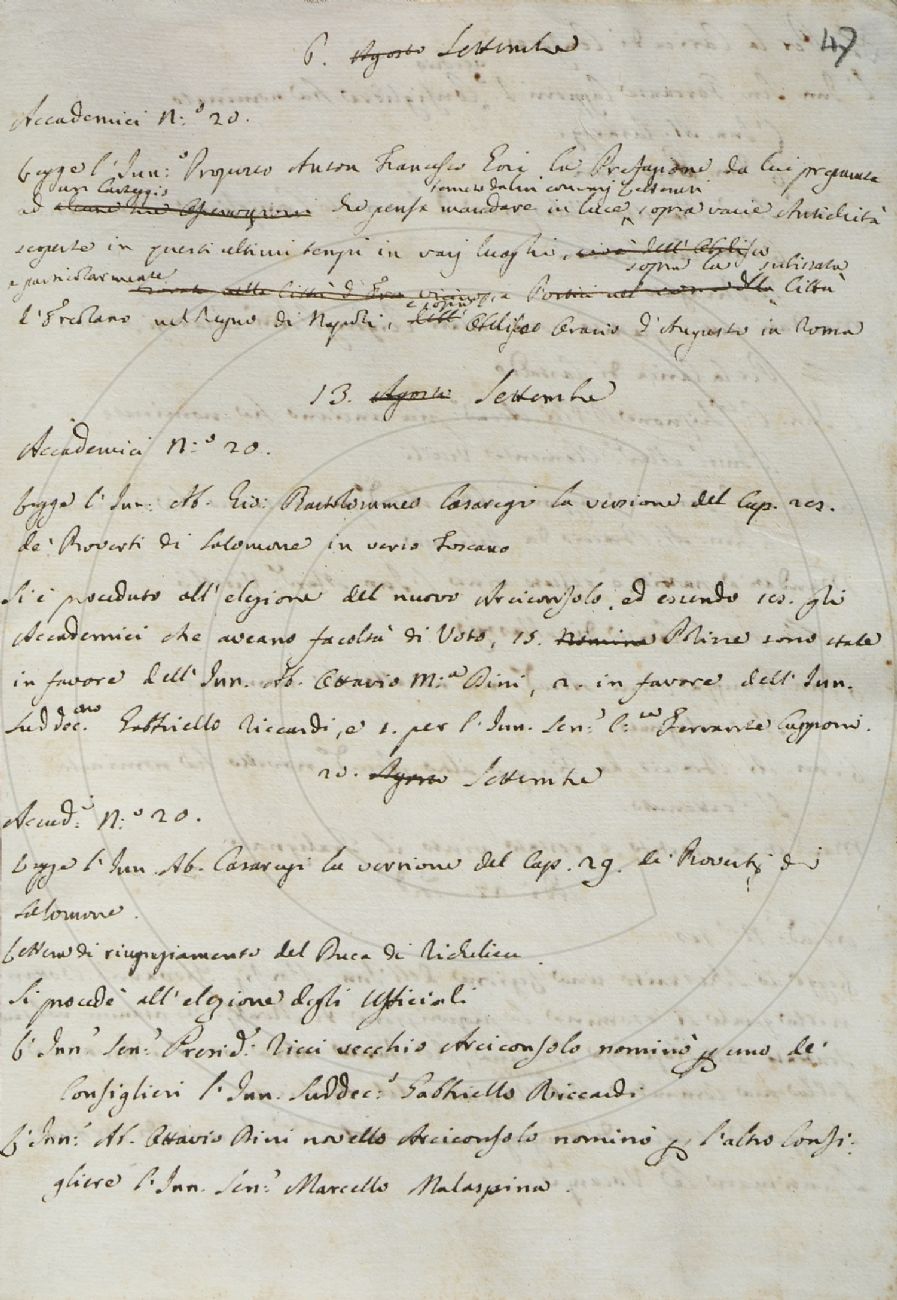 47
6. Agosto Settembre
Accademici N.o 20.
Legge l'Inn.o Proposto Anton Francesco Gori la Prefazione da lui preparata
un Carteggio
ad alcune sue che pensa mandare in luce sopra varie Antichità
scoperte in questi ultimi tempi in varj luoghi, cioè dell'Obelisco
sopra la subissata
e particolarmente
trovate nella Città di vicino a Portici nel Città
d'Ercolano nel Regno di Napoli, e sopra l' dell' Obelisco Orario d'Augusto in Roma
13. Agosto Settembre
Accademici N.o 20.
Legge l'Inn. Ab. Gio: Bartolommeo Casaregi la versione del Cap. 28.
de' Proverbi di Salomone in verso Toscano
Si è proceduto all'elezione del nuovo Arciconsolo, ed essendo 18. gli
Accademici che aveano facoltà di Voto, 15. Nomine Polizze sono state
in favore dell'Inn. Ab. Ottavio M.a Bini, 2. in favore dell'Inn.
Suddec.ono Gabbriello Riccardi, e 1. per l'Inn. Sen.e C.te Ferrante Capponi.
20. Agosto Settembre
Accad.i N.o 20.
Legge l'Inn. Ab. Casaregi la versione del Cap. 29. de' Proverbj di
Salomone.
Lettera di ringraziamento del Duca di Richelieu.
Si procedè all'elezione degli Ufficiali
L'Inn.o Sen.e Presid.e Ricci vecchio Arciconsolo nominò p uno de'
Consiglieri l'Inn. Suddec.o Gabbriello Riccardi
L'Inn.o Ab. Ottavio Bini novello Arciconsolo nominò p l'altro Consi-
gliere l'Inn. Sen.e Marcello Malaspina.